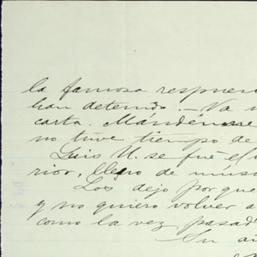 la famosa respues
han detenido. — Va u
carta. Mándense
no tuve tiempo de
Luis U. se fué el
rior, lleno de
Los dejo porque
y no quiero volver a
como la vez pasad
Un a